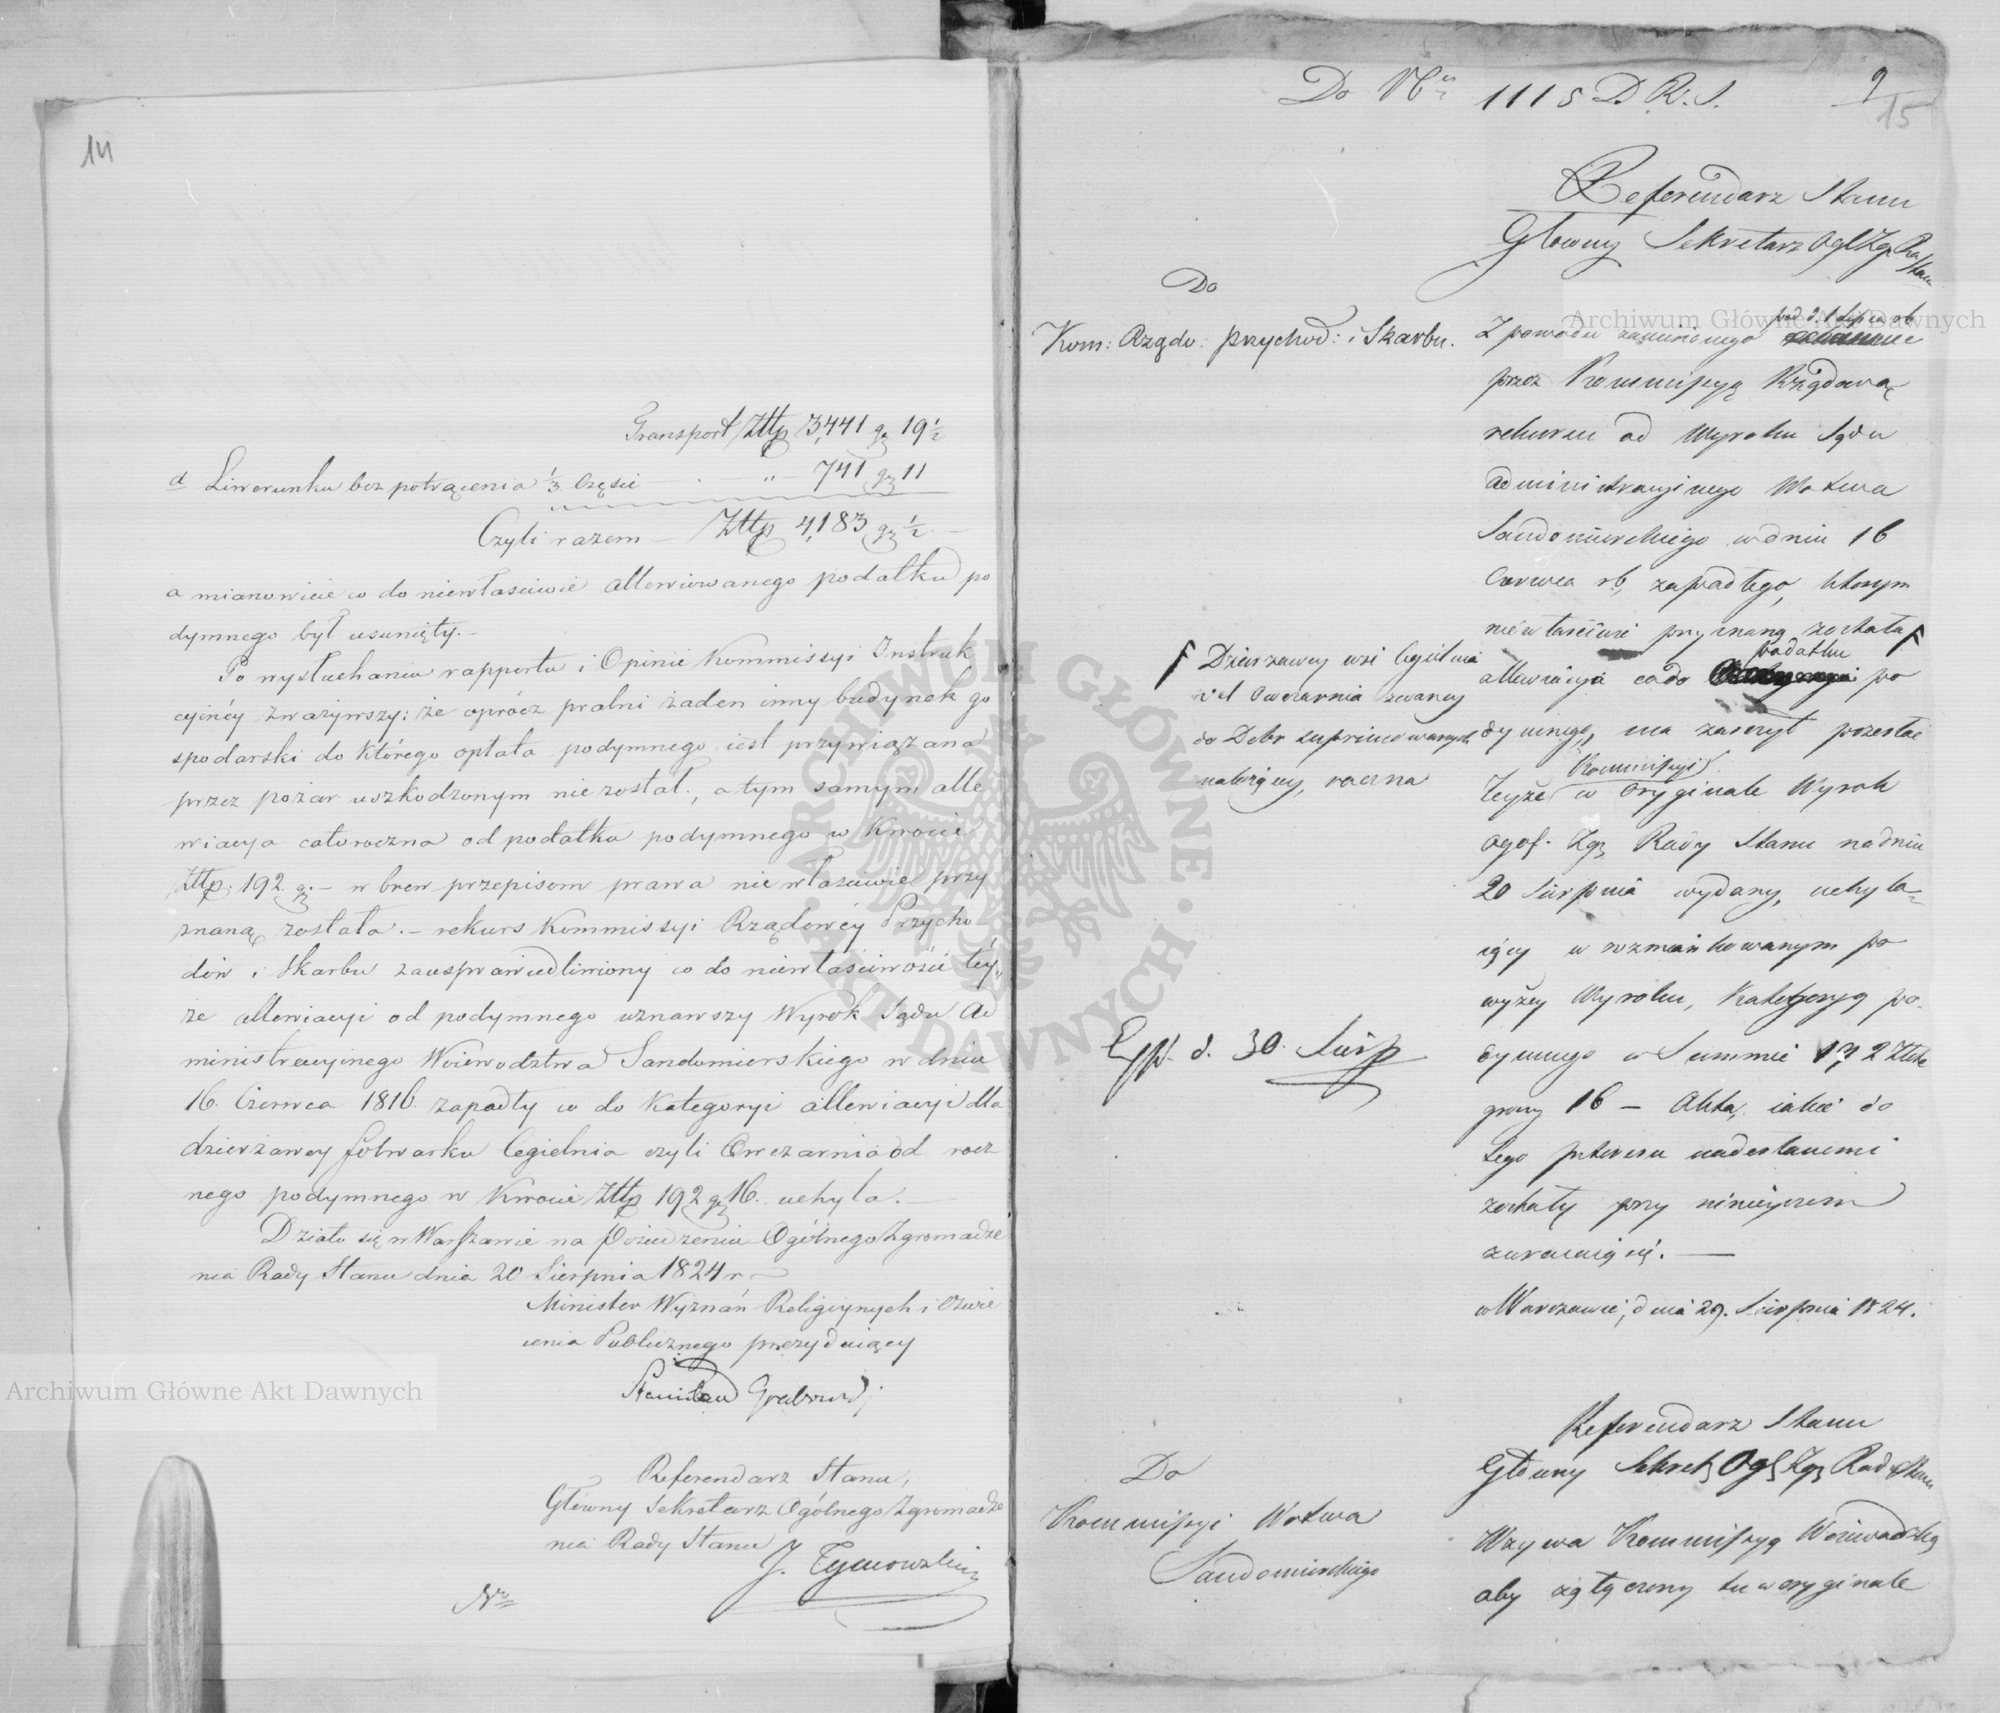 14
Transport Złtp 3,441 gr 19 ½
d Liwerunku bez potrącenia ⅓ Częsci — . — " 741 gr 11
Czyli razem — Złtp 4,183 gr ½ —
a mianowicie co do niewłasciwie allewiowanego podatku po
dymnego był usunięty.—
Po wysłuchaniu rapportu i Opinii Kommissyi Instruk
cyinéy zważywszy: że oprócz pralni żaden inny budynek go
spodarski do którego opłata podymnego iest przywiązana
przez pożar uszkodzonym nie został, a tym samym alle
wiacya całoroczna od podatku podymnego w kwocie
Złtp: 192 gr — wbrew przepisom prawa nie własciwie przy
znaną została.— rekurs Kommissyi Rządowéy Przycho
dów i Skarbu zausprawiedliwiony co do niewłasciwosci téy„
że allewiacyi od podymnego uznawszy Wyrok Sądu Ad
ministracyinego Woiewodztwa Sandomierskiego w dniu
16. Czerwca 1816. zapadły co do kategoryi allewiacyi dla
dzierżawcy folwarku Cegielnia czyli Owczarnia od rocz
nego podymnego w kwocie Złtp 192 gr 16. uchyla.—
Działo się w Warszawie na Posiedzeniu Ogólnego Zgromadze
nia Rady Stanu dnia 20 Sierpnia 1824 r—
Minister Wyznań Religiynych i Oświe
cenia Publicznego prezyduiący
Stanisław Grabowski
Referendarz Stanu,
Główny Sekretarz Ogólnego Zgromadze
nia Rady Stanu
J. Tymowski
Nro
Do Nru 1115 D. R. S.
9
15
Referendarz Stanu
Głowny Sekretarz Ogl Zgr Ra Stanu
Do
Kom: Rządo: Przychod: i Skarbu.
pod d. 1 Lipca rb
Z powodu zaniesionego
przez Kommissyą Rządową
rekursu od Wyroku Sądu
administracyinego Wotwa
Sandomierskiego w dniu 16
Czerwca rb, zapadłego, którym
niewłaściwie przyznaną została F
F Dzierzawcy wsi Cegielnia
vel Owczarnia zwaney
do Dobr suprimowanych
należącey, roczna
podatku
allewiacya co do po
dymnego, ma zaszczyt przesłać
Kommissyi
teyże w Oryginale Wyrok
Ogól. Zgr Rady Stanu na dniu
20 Sierpnia wydany, uchyla-
iący w wzmiankowanym po
wyżey Wyroku, Kategoryą po-
dymnego w Summie 192 Złote
groszy 16 — Akta, iakie do
tego interesu nadesłanemi
zostały przy ninieyszem
zwracaią się. —
w Warszawie, dnia 29. Sierpnia 1824.
Exp. d. 30. Sierp
Referendarz Stanu
Główny Sekret Ogl Zgr Rad Stanu
Do
Kommissyi Wotwa
Sandomierskiego
Wzywa Kommissyą Woiewodzką
aby załączony tu w oryginale
Archiwum Główne Akt Dawnych
Archiwum Główne Akt Dawnych
ARCHIWUM GŁÓWNE
AKT DAWNYCH